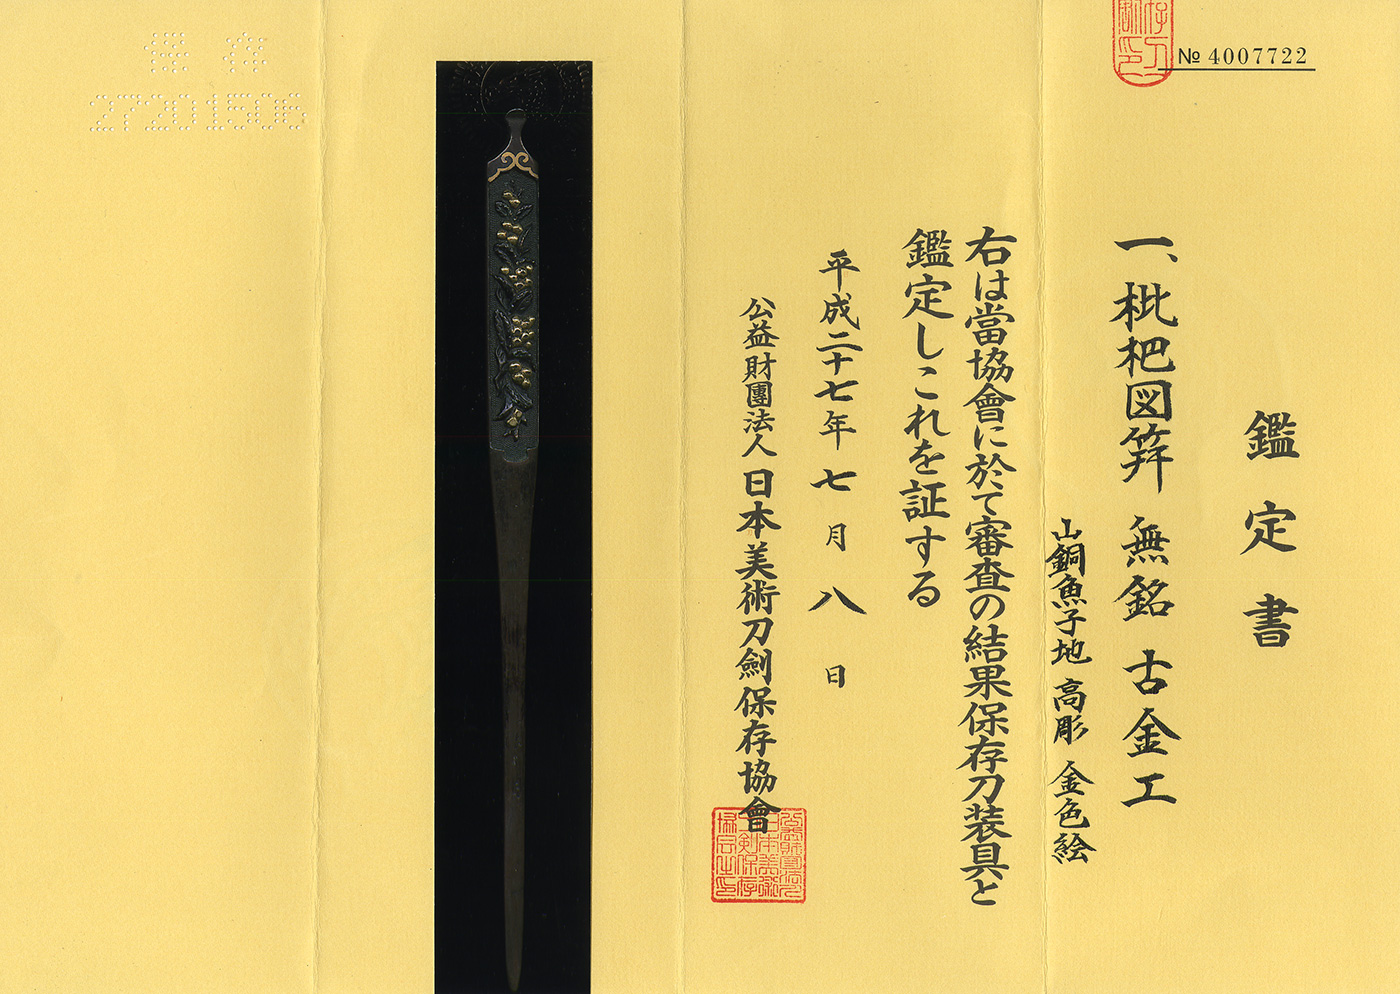 № 4007722
鑑定書
一、枇杷図筓 無銘 古金工
山銅魚子地 高彫 金色絵
右は當協會に於て審査の結果保存刀装具と
鑑定しこれを証する
平成二十七年七月八日
公益財團法人 日本美術刀劍保存協會
保存
27201506